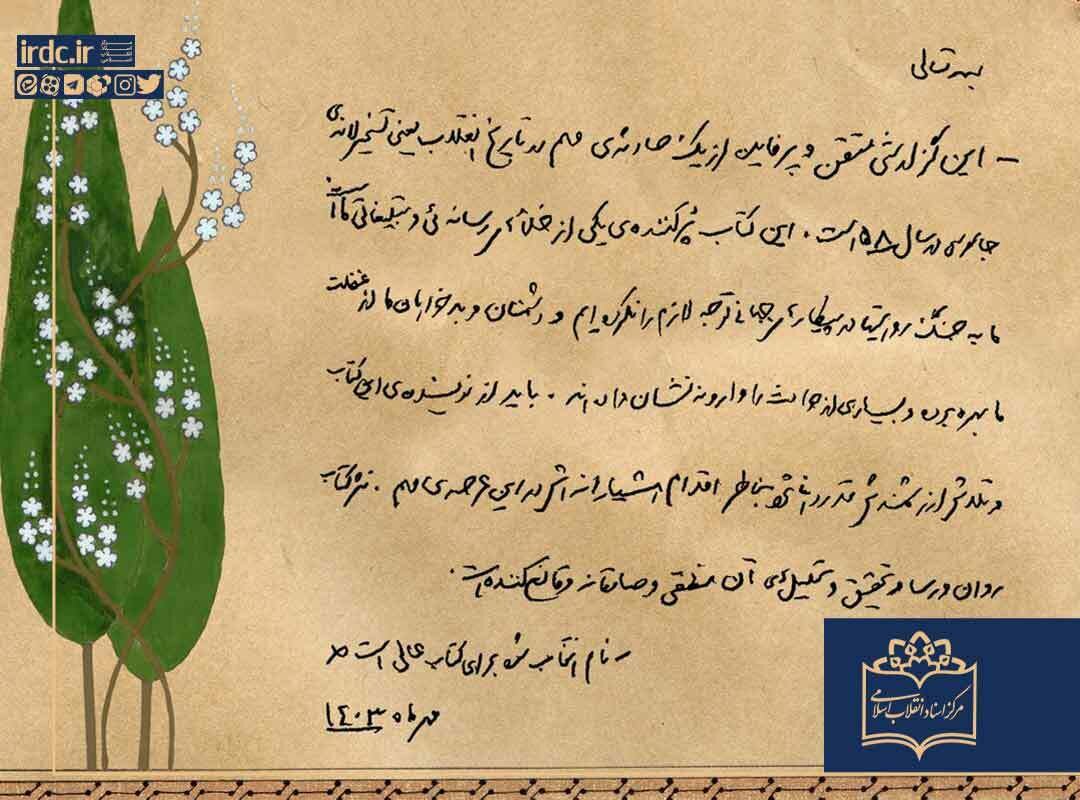 irdc.ir
بسمه تعالی
- این گزارشی متقن و پر فایده از یک حادثه‌ی مهم در تاریخ انقلاب یعنی تسخیر لانه‌ی
جاسوسی در سال ۵۸ است. این کتاب پُرکننده‌ی یکی از خلأهای رسانه‌ئی و تبلیغاتی ما است
ما به جنگ روایتها در پیکارهای جهانی توجه لازم را نکرده‌ایم و دشمنان و بدخواهان ما از غفلت
ما بهره برده و بسیاری از حوادث را وارونه نشان داده‌اند. باید از نویسنده‌ی این کتاب
و تلاش ارزشمندش قدردانی شود بخاطر اقدام هشیارانه‌اش در این عرصه‌ی مهم. نثر کتاب
روان و رسا و تحقیق و تحلیلهای آن منطقی و صادقانه و قانع‌کننده است.
- نام انتخاب شده برای کتاب عالی است
مهرماه ۱۴۰۳
مرکز اسناد انقلاب اسلامی